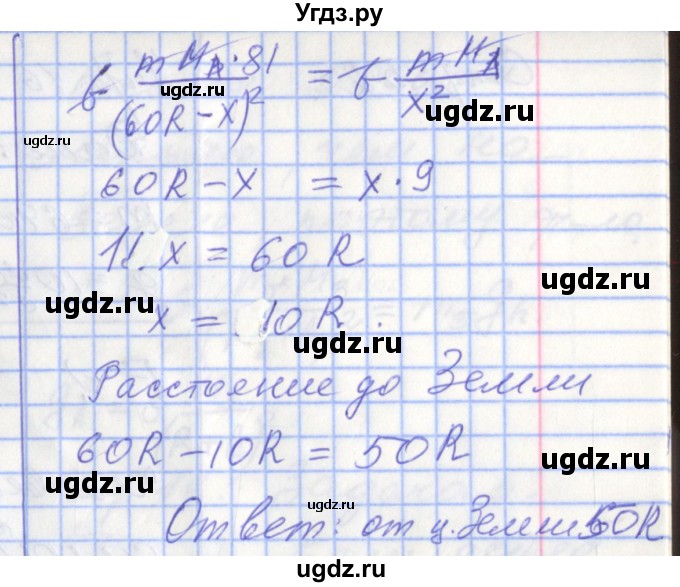 Угдз.ру
G mMл·81 / (60R-x)² = G mMл / x²
ugdz.ru
ugdz.ru
ugdz.ru
60R - x = x·9
11.x = 60R
ugdz.ru
ugdz.ru
x = 10R.
ugdz.ru
Расстояние до Земли
60R - 10R = 50R
ugdz.ru
ugdz.ru
ugdz.ru
Ответ: от ц. Земли 50R
ugdz.ru
ugdz.ru